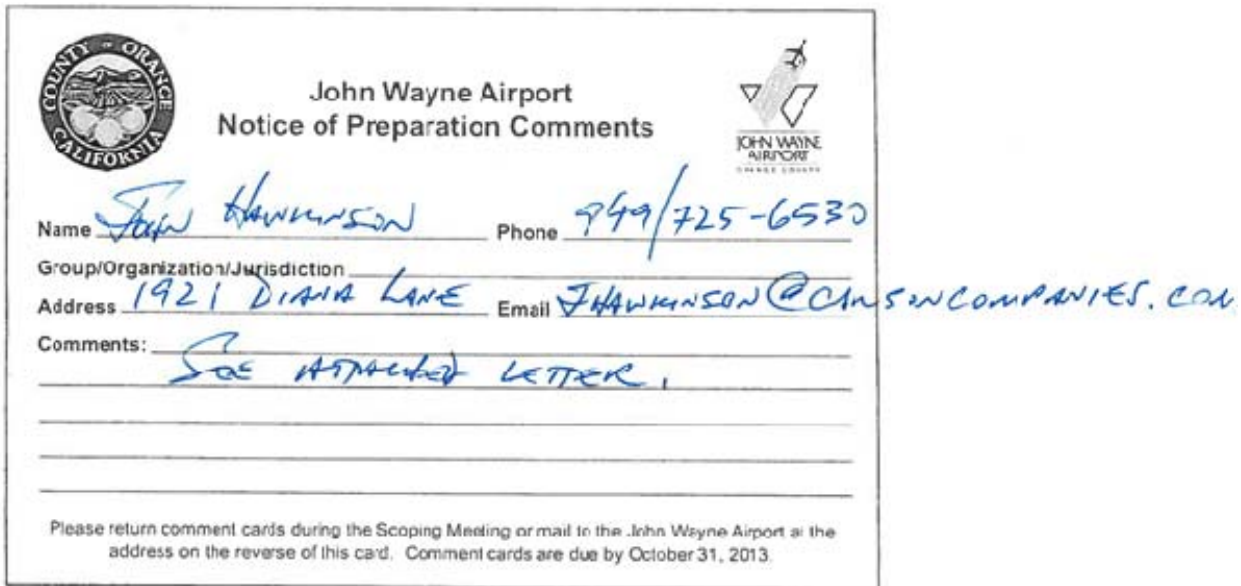 COUNTY OF ORANGE
CALIFORNIA
John Wayne Airport
Notice of Preparation Comments
JOHN WAYNE
AIRPORT
ORANGE COUNTY
Name John Hawkinson Phone 949/725-6530
Group/Organization/Jurisdiction
Address 1921 Diana Lane Email
Comments:
See attached letter.
Please return comment cards during the Scoping Meeting or mail to the John Wayne Airport at the
address on the reverse of this card. Comment cards are due by October 31, 2013.